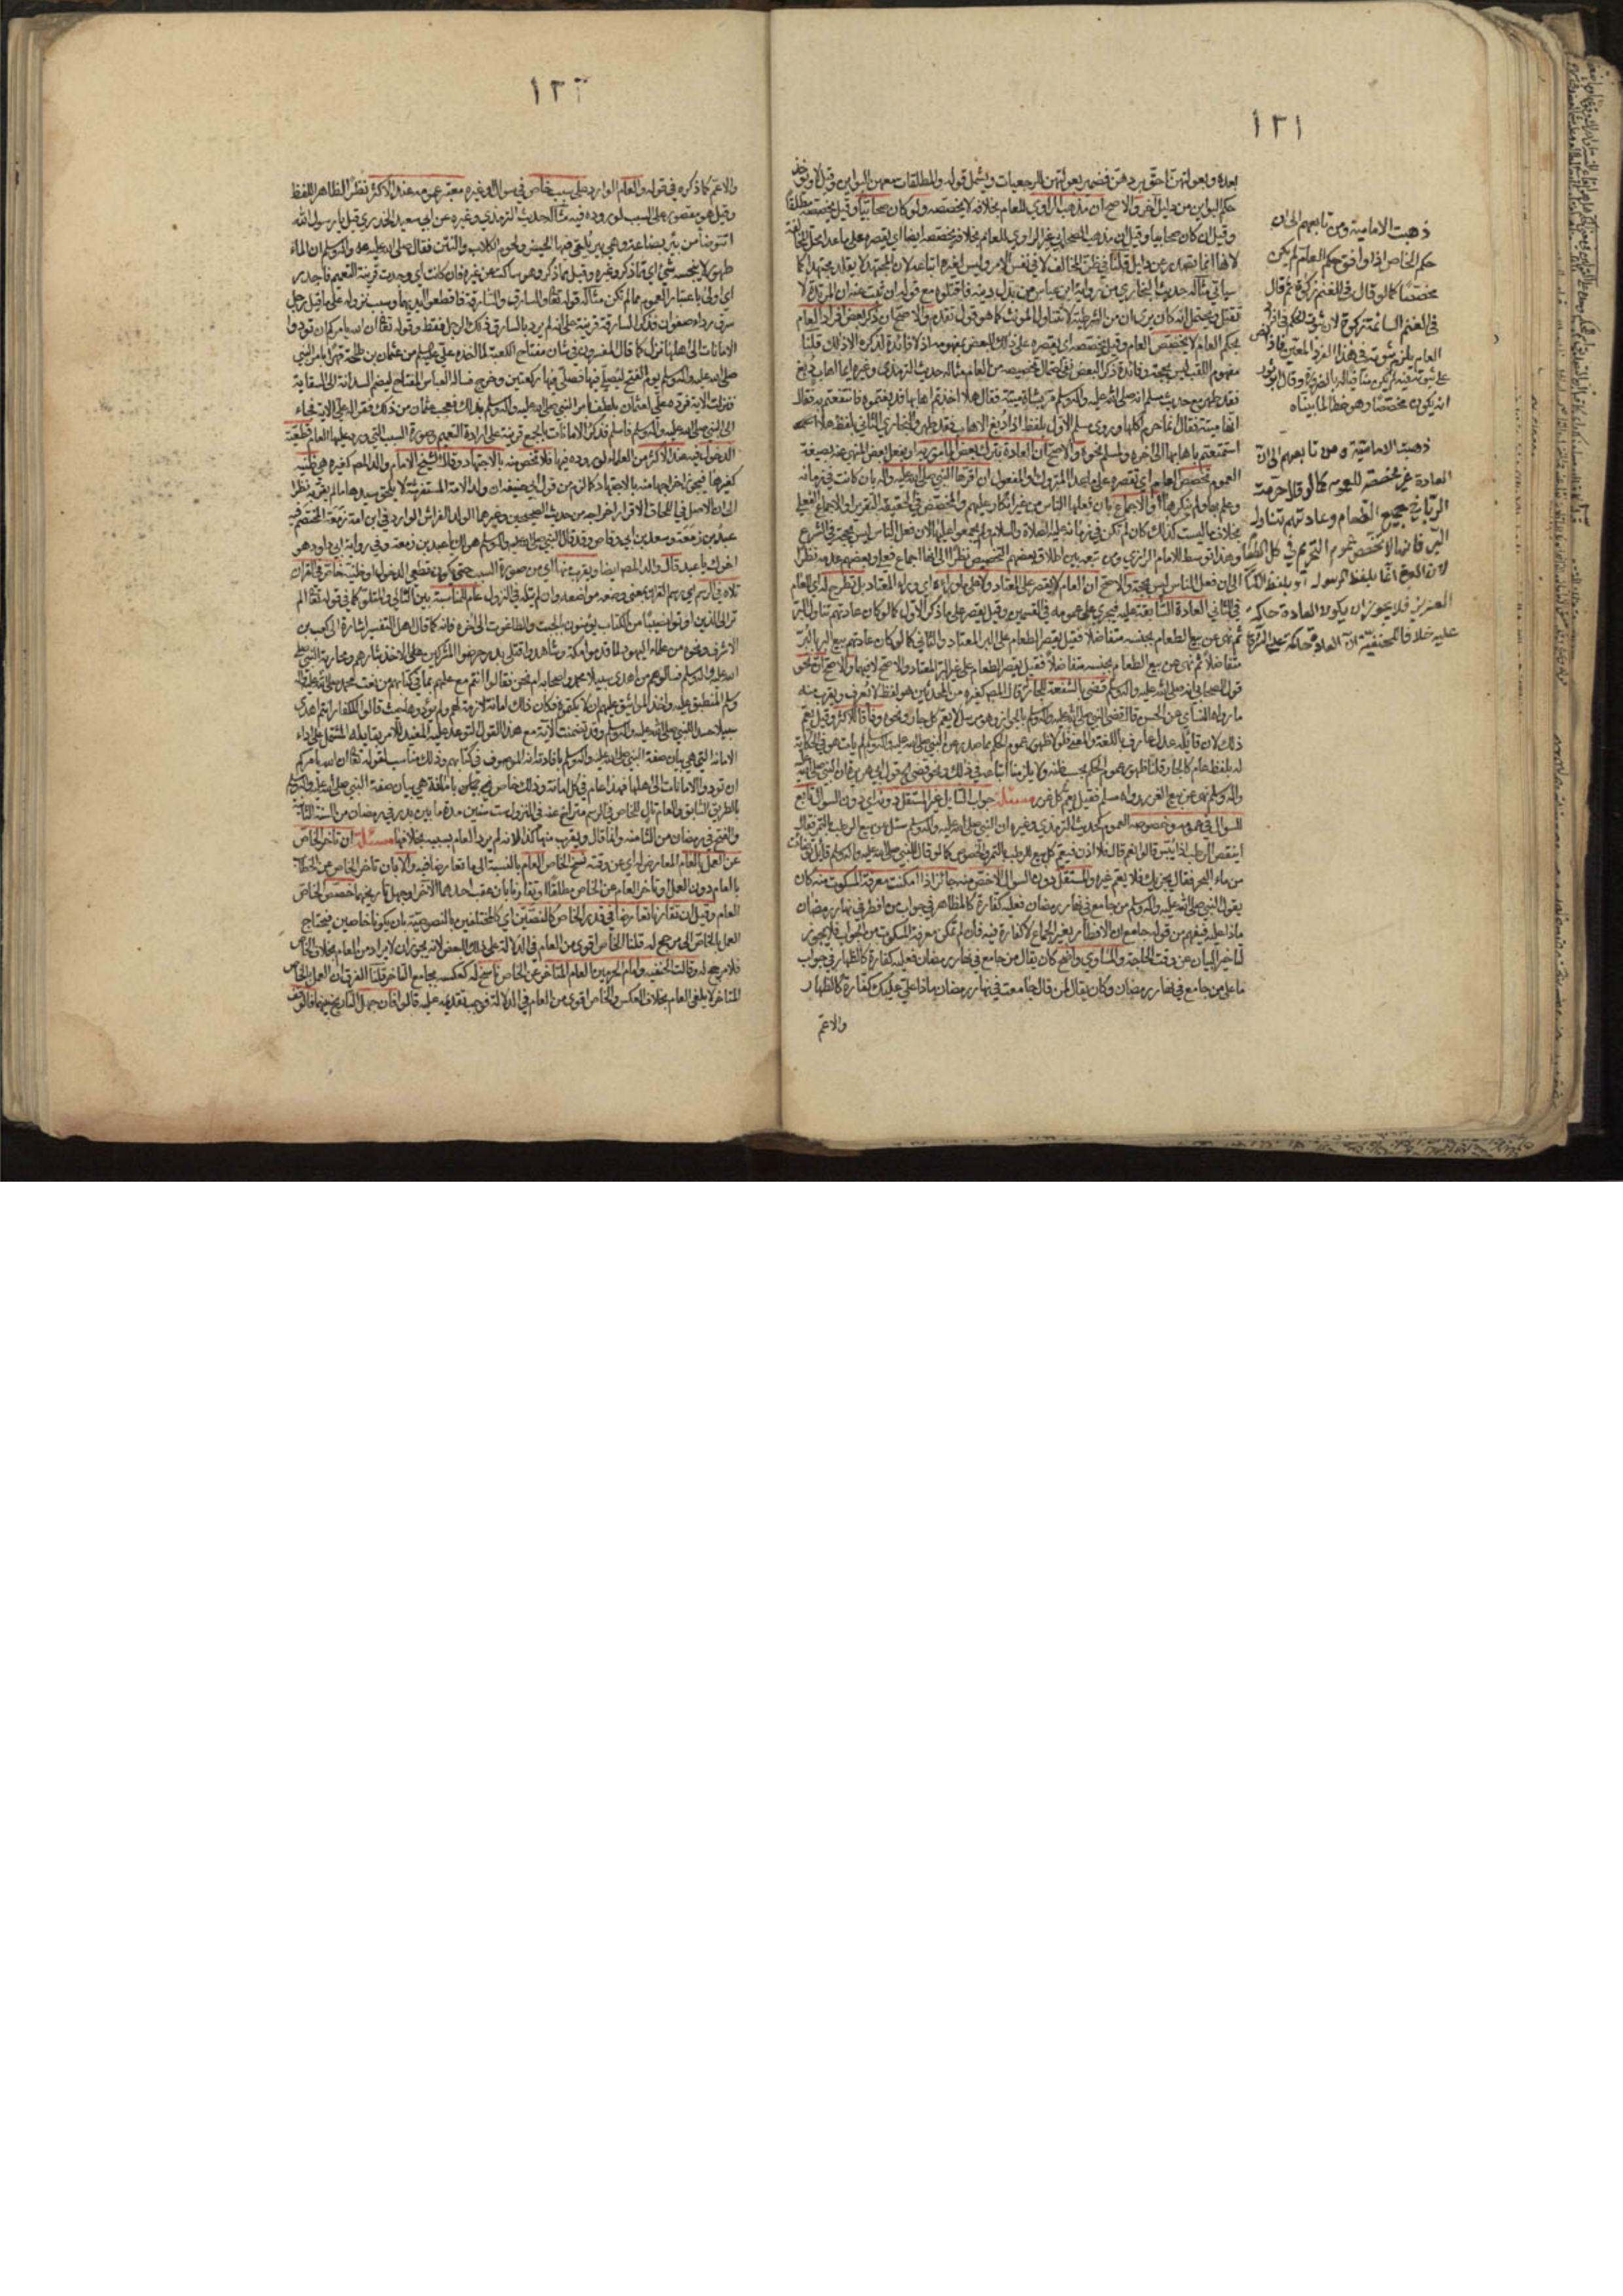 ١٢١
بعده وبعولتهن احق بردهن فضمير بعولتهن للرجعيات ويشمل قوله والمطلقات معهن البواين وقيل لا ويؤخذ
حكم البواين من دليل آخر والاصح ان مذهب الراوي للعام بخلافه لا يخصصه ولو كان صحابيا وقيل يخصصه مطلقا
وقيل ان كان صحابيا وقيل ان مذهب الصحابي غير الراوي للعام بخلافه يخصصه ايضا اي يقصره على ما عدا محل المخالفة
لانها انما تصدر عن دليل قلنا في ظن المخالف لا في نفس الامر وليس لغيره اتباعه لان المجتهد لا يقلد مجتهدا كما
سياتي مثاله حديث البخاري من رواية ابن عباس من بدل دينه فاقتلوه مع قوله ان ثبت عنه ان المرتدة لا
تقتل ويحتمل انه كان يرى ان من الشرطية لا تتناول المونث كما هو قول تقدم والاصح ان ذكر بعض افراد العام
بحكم العام لا يخصص العام وقيل يخصصه اي يقصره على ذلك البعض بمفهومه اذ لا فائدة لذكره الا ذلك قلنا
مفهوم اللقب ليس بحجة وفائدة ذكر البعض نفي احتمال تخصيصه من العام مثاله حديث الترمذي وغيره ايما اهاب دبغ
فقد طهر مع حديث مسلم انه صلى الله عليه واله وسلم مر بشاة ميتة فقال هلا اخذتم اهابها فدبغتموه فانتفعتم به فقالوا
انها ميتة فقال انما حرم اكلها وروى مسلم الاول بلفظ اذا دبغ الاهاب فقد طهر والبخاري الثاني بلفظ هلا
استمتعتم باهابها الى اخره ولمسلم نحوه والاصح ان العادة بترك بعض المامور به او بفعل بعض المنهي عنه بصيغة
العموم تخصص العام اي تقصره على ما عدا المتروك والمفعول ان اقرها النبي صلى الله عليه واله بان كانت في زمانه
وعلم بها ولم ينكرها او الاجماع بان فعلها الناس من غير انكار عليهم والمخصص في الحقيقة التقرير او الاجماع الفعلي
بخلاف ما ليست كذلك كان لم تكن في زمانه عليه الصلاة والسلام ولم يجمعوا عليها لان فعل الناس ليس بحجة في الشرع
وهذا توسط للامام الرازي ومن تبعه بين اطلاق بعضهم التخصيص نظرا الى انها اجماع فعلي وبعضهم عدمه نظرا
الى ان فعل الناس ليس بحجة والاصح ان العام لا يقصر على المعتاد ولا على ما وراءه اي وراء المعتاد بل تطرح له اي للعام
في الثاني العادة السابقة عليه فيجري على عمومه في القسمين وقيل يقصر على ما ذكر الاول كما لو كان عادتهم تناول البر
ثم نهى عن بيع الطعام بجنسه متفاضلا فقيل يقصر الطعام على البر المعتاد والثاني كما لو كان عادتهم بيع البر بالبر
متفاضلا ثم نهى عن بيع الطعام بجنسه متفاضلا فقيل يقصر الطعام على غير البر المعتاد والاصح لا فيهما والاصح ان نحو
قول الصحابي انه صلى الله عليه واله وسلم قضى بالشفعة للجار قال المص كغيره من المحدثين هو لفظ لا يعرف ويقرب منه
ما رواه النسائي عن الحسن قال قضى النبي صلى الله عليه واله وسلم بالجوار وهو مرسل لا يعم كل جار ونحوه وفاقا للاكثر وقيل يعم
ذلك لان قائله عدل عارف باللغة والمعنى فلولا ظهور عموم الحكم مما صدر عن النبي صلى الله عليه واله وسلم لم يات هو في الحكاية
له بلفظ عام كالجار قلنا ظهور عموم الحكم بحسب ظنه ولا يلزمنا اتباعه في ذلك ونحو قضى الخ قول ابي هريرة ان النبي صلى الله عليه
واله وسلم نهى عن بيع الغرر رواه مسلم فقيل يعم كل غرر مسئلة جواب السائل غير المستقل دونه اي دون السوال تابع
للسوال في عمومه وخصوصه العموم كحديث الترمذي وغيره ان النبي صلى الله عليه واله وسلم سئل عن بيع الرطب بالتمر فقال
اينقص الرطب اذا يبس قالوا نعم قال فلا اذن فيعم كل بيع للرطب بالتمر والخصوص كما لو قال للنبي صلى الله عليه واله وسلم قائل توضات
من ماء البحر فقال يجزيك فلا يعم غيره والمستقل دون السوال الاخص منه جائز اذا امكنت معرفة المسكوت منه كان
يقول النبي صلى الله عليه واله وسلم من جامع في نهار رمضان فعليه كفارة كالمظاهر في جواب من افطر في نهار رمضان
ماذا عليه فيفهم من قوله جامع ان الافطار بغير الجماع لا كفارة فيه فان لم تمكن معرفة المسكوت من الجواب فلا يجوز
لتاخير البيان عن وقت الحاجة والمساوي واضح كان يقال من جامع في نهار رمضان فعليه كفارة كالظهار في جواب
ما على من جامع في نهار رمضان وكان يقال لمن قال جامعت في نهار رمضان ماذا علي عليك كفارة كالظهار
والاعم
ذهبت الامامية ومن تابعهم الى ان
حكم الخاص اذا وافق حكم العام لم يكن
مخصصا كما لو قال في الغنم زكوة ثم قال
في الغنم السائمة زكوة لان ثبوت الحكم في افراد
العام يلزم ثبوته في هذا الفرد المعين فاذا نص
على ثبوته فيه لم يكن منافيا له بالضرورة وقال ابو ثور
انه يكون مخصصا وهو خطا لما بيناه
ذهبت الامامية ومن تابعهم الى ان
العادة غير مخصصة للعموم كما لو قال حرمت
الربا في جميع الطعام وعادتهم تناول
البر فانها لا تخصص عموم التحريم في كل الطعام
لان العموم انما بلفظ الرسول او بلفظ الكتاب
العزيز فلا يجوز ان يكون العادة حاكمة
عليه خلافا للحنفية لان العادة حاكمة
١٢٢
والاعم كما ذكره في قوله والعام الوارد على سبب خاص في سوال او غيره معتبر عمومه عند الاكثر نظرا لظاهر اللفظ
وقيل هو مقصور على السبب لوروده فيه مثاله حديث الترمذي وغيره عن ابي سعيد الخدري قيل يا رسول الله
انتوضأ من بئر بضاعة وهي بئر يلقى فيها الحيض ولحوم الكلاب والنتن فقال صلى الله عليه واله وسلم ان الماء
طهور لا ينجسه شئ اي مما ذكر وغيره وقيل مما ذكر وهو ساكت عن غيره فان كانت اي وجدت قرينة التعميم فاجدر
اي اولى باعتبار العموم مما لم تكن مثاله قوله تعالى والسارق والسارقة فاقطعوا ايديهما وسبب نزوله على ما قيل رجل
سرق رداء صفوان فذكر السارقة قرينة على انه لم يرد بالسارق ذلك الرجل فقط وقوله تعالى ان الله يامركم ان تودوا
الامانات الى اهلها نزل كما قال المفسرون في شان مفتاح الكعبة لما اخذه علي عليه السلم من عثمان بن طلحة قهرا بامر النبي
صلى الله عليه واله وسلم يوم الفتح ليصلي فيها فصلى فيها ركعتين وخرج فساله العباس المفتاح ليضم السدانة الى السقاية
فنزلت الاية فرده علي لعثمان بلطف بامر النبي صلى الله عليه واله وسلم بذلك فعجب عثمان من ذلك فقرا له علي الاية فجاء
الى النبي صلى الله عليه واله وسلم فاسلم فذكر الامانات بالجمع قرينة على ارادة العموم وصورة السبب التي ورد عليها العام قطعية
الدخول فيه عند الاكثر من العلماء لوروده فيها فلا تخص منه بالاجتهاد وقال الشيخ الامام والد المص كغيره هي ظنية
كغيرها فيجوز اخراجها منه بالاجتهاد كما لزم من قول ابي حنيفة ان ولد الامة المستفرشة لا يلحق سيدها ما لم يقر به نظرا
الى ان الاصل في اللحاق الاقرار اخراجه من حديث الصحيحين وغيرهما الولد للفراش الوارد في ابن امة زمعة المختصم فيه
عبد بن زمعة وسعد بن ابي وقاص وقد قال النبي صلى الله عليه واله وسلم هو لك يا عبد بن زمعة وفي رواية ابي داود هو
اخوك يا عبد قال والد المص ايضا ويقرب منها اي من صورة السبب حتى يكون قطعي الدخول او ظنيه خاص في القران
تلاه في الرسم اي رسم القران بمعنى وضعه مواضعه وان لم يتله في النزول عام للمناسبة بين التالي والمتلو كما في قوله تعالى الم
تر الى الذين اوتوا نصيبا من الكتاب يؤمنون بالجبت والطاغوت الى اخره فانه كما قال اهل التفسير اشارة الى كعب بن
الاشرف ونحوه من علماء اليهود لما قدموا مكة وشاهدوا قتلى بدر وحرضوا المشركين على الاخذ بثارهم ومحاربة النبي صلى
الله عليه واله وسلم فسالوهم من اهدى سبيلا محمد واصحابه ام نحن فقالوا انتم مع علمهم بما في كتابهم من نعت محمد صلى الله عليه واله
وسلم المنطبق عليه واخذ المواثيق عليهم ان لا يكتموه فكان ذلك امانة لازمة لهم ولم يؤدوها حيث قالوا للكفار انتم اهدى
سبيلا حسدا للنبي صلى الله عليه واله وسلم وقد تضمنت الآية مع هذا القول التوعد عليه المفيد للامر بمقابله المشتمل على اداء
الامانة التي هي بيان صفة النبي صلى الله عليه واله وسلم بافادة انه الموصوف في كتابهم وذلك مناسب لقوله تعالى ان الله يامركم
ان تودوا الامانات الى اهلها فهذا عام في كل امانة وذلك خاص بامانة هي بيان صفة النبي صلى الله عليه واله وسلم
بالطريق السابق والعام تال للخاص في الرسم متراخ عنه في النزول بست سنين مدة ما بين بدر في رمضان من السنة الثانية
والفتح في رمضان من الثامنة وانما قال ويقرب منها كذا لانه لم يرد العام بسببه بخلافها مسئلة ان تاخر الخاص
عن العمل بالعام المعارض له اي عن وقته نسخ الخاص العام بالنسبة الى ما تعارضا فيه والا بان تاخر الخاص عن الخطاب
بالعام دون العمل او تاخر العام عن الخاص مطلقا او تقارنا بان عقب احدهما الآخر او جهل تاريخهما خصص الخاص
العام وقيل ان تقارنا تعارضا في قدر الخاص كالنصين اي كالمختلفين بالنصوصية بان يكونا خاصين فيحتاج
العمل بالخاص الى مرجح له قلنا الخاص اقوى من العام في الدلالة على ذلك البعض لانه يجوز ان لا يراد من العام بخلاف الخاص
فلا مرجح له وقالت الحنفية وامام الحرمين العام المتاخر عن الخاص ناسخ له كعكسه بجامع التاخر قلنا الفرق ان العمل بالخاص
المتاخر لا يلغي العام بخلاف العكس والخاص اقوى من العام في الدلالة فوجب تقديمه عليه قالوا فان جهل التاريخ بينهما فالوقف